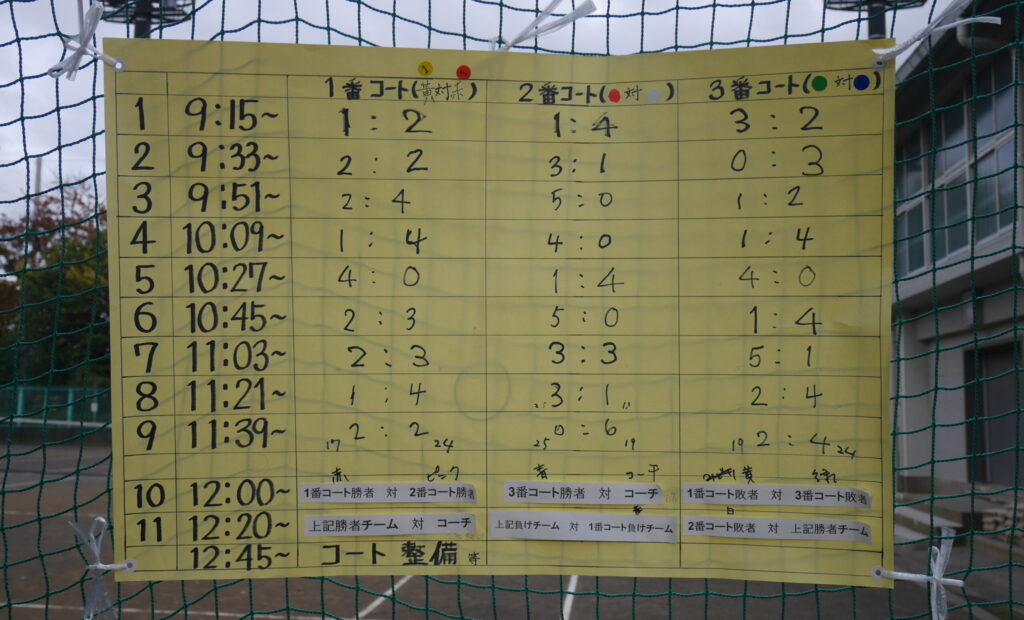 1番コート(黄対赤) 2番コート(対) 3番コート(対)
1 9:15~ 1:2 1:4 3:2
2 9:33~ 2:2 3:1 0:3
3 9:51~ 2:4 5:0 1:2
4 10:09~ 1:4 4:0 1:4
5 10:27~ 4:0 1:4 4:0
6 10:45~ 2:3 5:0 1:4
7 11:03~ 2:3 3:3 5:1
8 11:21~ 1:4 3:1 2:4
9 11:39~ 17 2:2 24 25 0:6 19 19 2:4 24
赤 ピンク 青 コーチ 黄 緑
10 12:00~ 1番コート勝者 対 2番コート勝者 3番コート勝者 対 コーチ 1番コート敗者 対 3番コート敗者
白
11 12:20~ 上記勝者チーム 対 コーチ 上記負けチーム 対 1番コート負けチーム 2番コート敗者 対 上記勝者チーム
12:45~ コート 整備 等